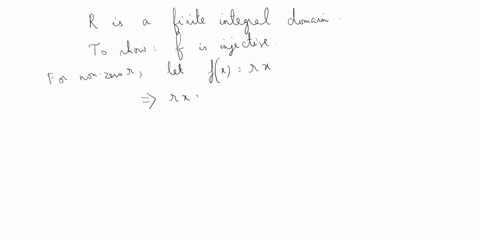 R is a finite integral domain.
To show: f is injective.
For non-zero r, let f(x) = rx
⇒ rx =